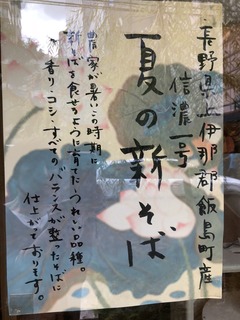 長野県上伊那郡飯島町産
信濃一号
夏の新そば
農家が暑いこの時期に
新そばを食せるように育てたうれしい品種。
香り・コシ・すべてのバランスが整ったそばに
仕上がっております。